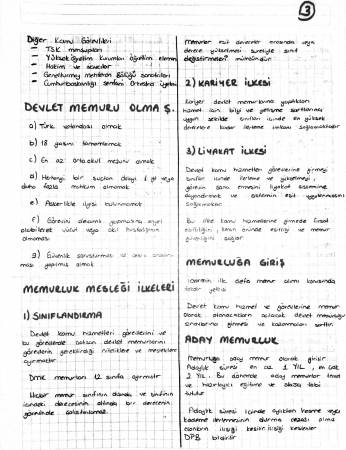 3
Diğer Kamu Görevlileri
— TSK mensupları
— Yüksek öğretim kurumları öğretim elemanı
— Hakim ve savcılar
— Cumhurbaşkanlığı senfoni Orkestra üyeleri
DEVLET MEMURU OLMA Ş.
a) Türk vatandaşı olmak
b) 18 yaşını tamamlamak
c) En az ortaokul mezunu olmak
d) Herhangi bir suçtan dolayı 1 yıl veya
daha fazla mahkum olmamak
e) Askerlikle ilgisi bulunmamak
f) Görevini devamlı yapmasına engel
olabilecek vücut veya akıl hastalığının
olmaması
g) Güvenlik soruşturması
ması yapılmış olmak
MEMURLUK MESLEĞİ İLKELERİ
1) SINIFLANDIRMA
Devlet kamu hizmetleri görevlerini ve
bu görevlerde çalışan devlet memurlarını
görevlerin gerektirdiği niteliklere ve mesleklere
ayırmaktır
DMK memurları 12 sınıfa ayırmıştır
Hiçbir memur sınıfının dışında ve sınıfının
içindeki derecesinin altında bir derecenin
görevinde çalıştırılamaz.
memurlar eşit dereceler arasında veya
derece yükselmesi suretiyle sınıf
değiştirmeleri mümkündür
2) KARİYER İLKESİ
Kariyer devlet memurlarına yaptıkları
hizmet için bilgi ve yetişme şartlarına
uygun şekilde sınıfları içinde en yüksek
derecelere kadar ilerleme imkanı sağlamaktadır
3) LİYAKAT İLKESİ
Devlet kamu hizmetleri görevlerine girmeyi
sınıflar içinde ilerleme ve yükselmeyi,
görevin sona ermesini liyakat sistemine
dayandırmak ve sistemin eşit uygulanmasını
sağlamaktır
Bu ilke kamu hizmetlerine girmede fırsat
eşitliğini, kanun önünde eşitliği ve memur
güvenliğini sağlar
MEMURLUĞA GİRİŞ
ilk defa memur alımı
Devlet kamu hizmet ve görevlerine memur
olarak atanacakların açılacak devlet memurluğu
sınavlarına girmesi ve kazanmaları şarttır
ADAY MEMURLUK
Memurluğa aday memur olarak girilir
Adaylık süresi en az 1 YIL, en çok
2 YIL. Bu dönemde aday memurlar temel
ve hazırlayıcı eğitime ve staja tabi
tutulur
Adaylık süresi içinde aylıktan kesme veya
kademe ilerlemesinin durdurma cezası alma
ilişkileri kesilir. İlişiği kesilenler
DPB bildirilir